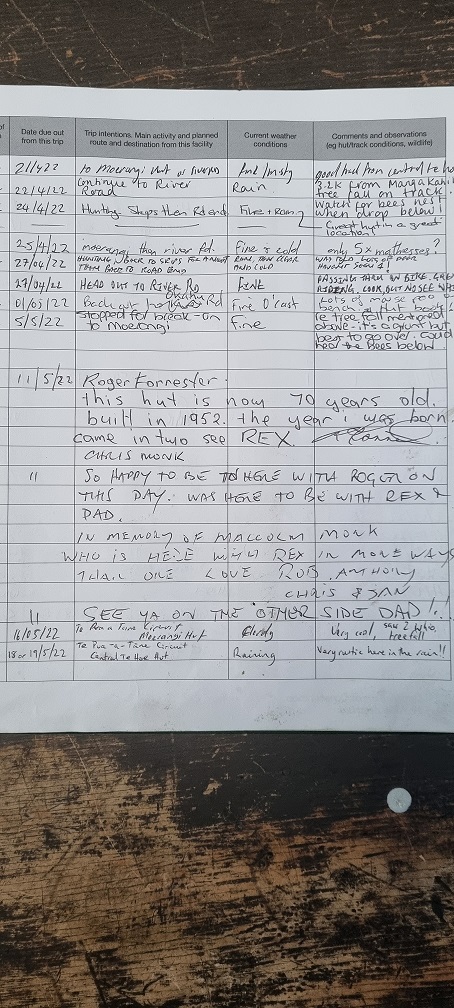 of
Date due out
from this trip
Trip intentions. Main activity and planned
route and destination from this facility
Current weather
conditions
Comments and observations
(eg hut/track conditions, wildlife)
21/4/22 to Moerangi Hut or
Continue to River
Road
22/4/22 Rain 3.2K from Mangakahi
tree fall on track.
24/4/22 Hunting. Stops then Rd end. Fine + Rain Watch for bees nest
when drop below!
Great hut in a great
location!
25/4/22 moerangi then river Rd. Fine & cold only 5x mattresses?
27/04/22 HUNTING BACK TO
THEN BACK TO ROAD END RAIN, THEN CLEAR
AND COLD
29/04/22 HEAD OUT TO RIVER RD FINE
01/05/22 Back Rd Fine O'cast Lots of mouse poo on
bench
5/5/22 stopped for break - on
to moerangi Fine re tree fall mentioned
above - it's a grunt but
best to go over. Could
hear the bees below
11/5/22 Roger Forrester.
this hut is now 70 years old.
built in 1952. the year i was born.
came in two see REX
CHRIS MONK
11 SO HAPPY TO BE HERE WITH ROGER ON
THIS DAY. WAS HERE TO BE WITH REX &
DAD.
IN MEMORY OF MALCOLM MONK
WHO IS HERE WITH REX IN MORE WAYS
THAN ONE LOVE ROB. ANTHONY
CHRIS & JAN
11 SEE YA ON THE OTHER SIDE DAD!!
16/05/22 Circuit
Moerangi Hut Cloudy Very cool, saw 2 whio,
treefall
18 or 19/5/22 Te Pua-a-Tane Circuit
Central Te Hoe Hut Raining Very rustic here in the rain!!